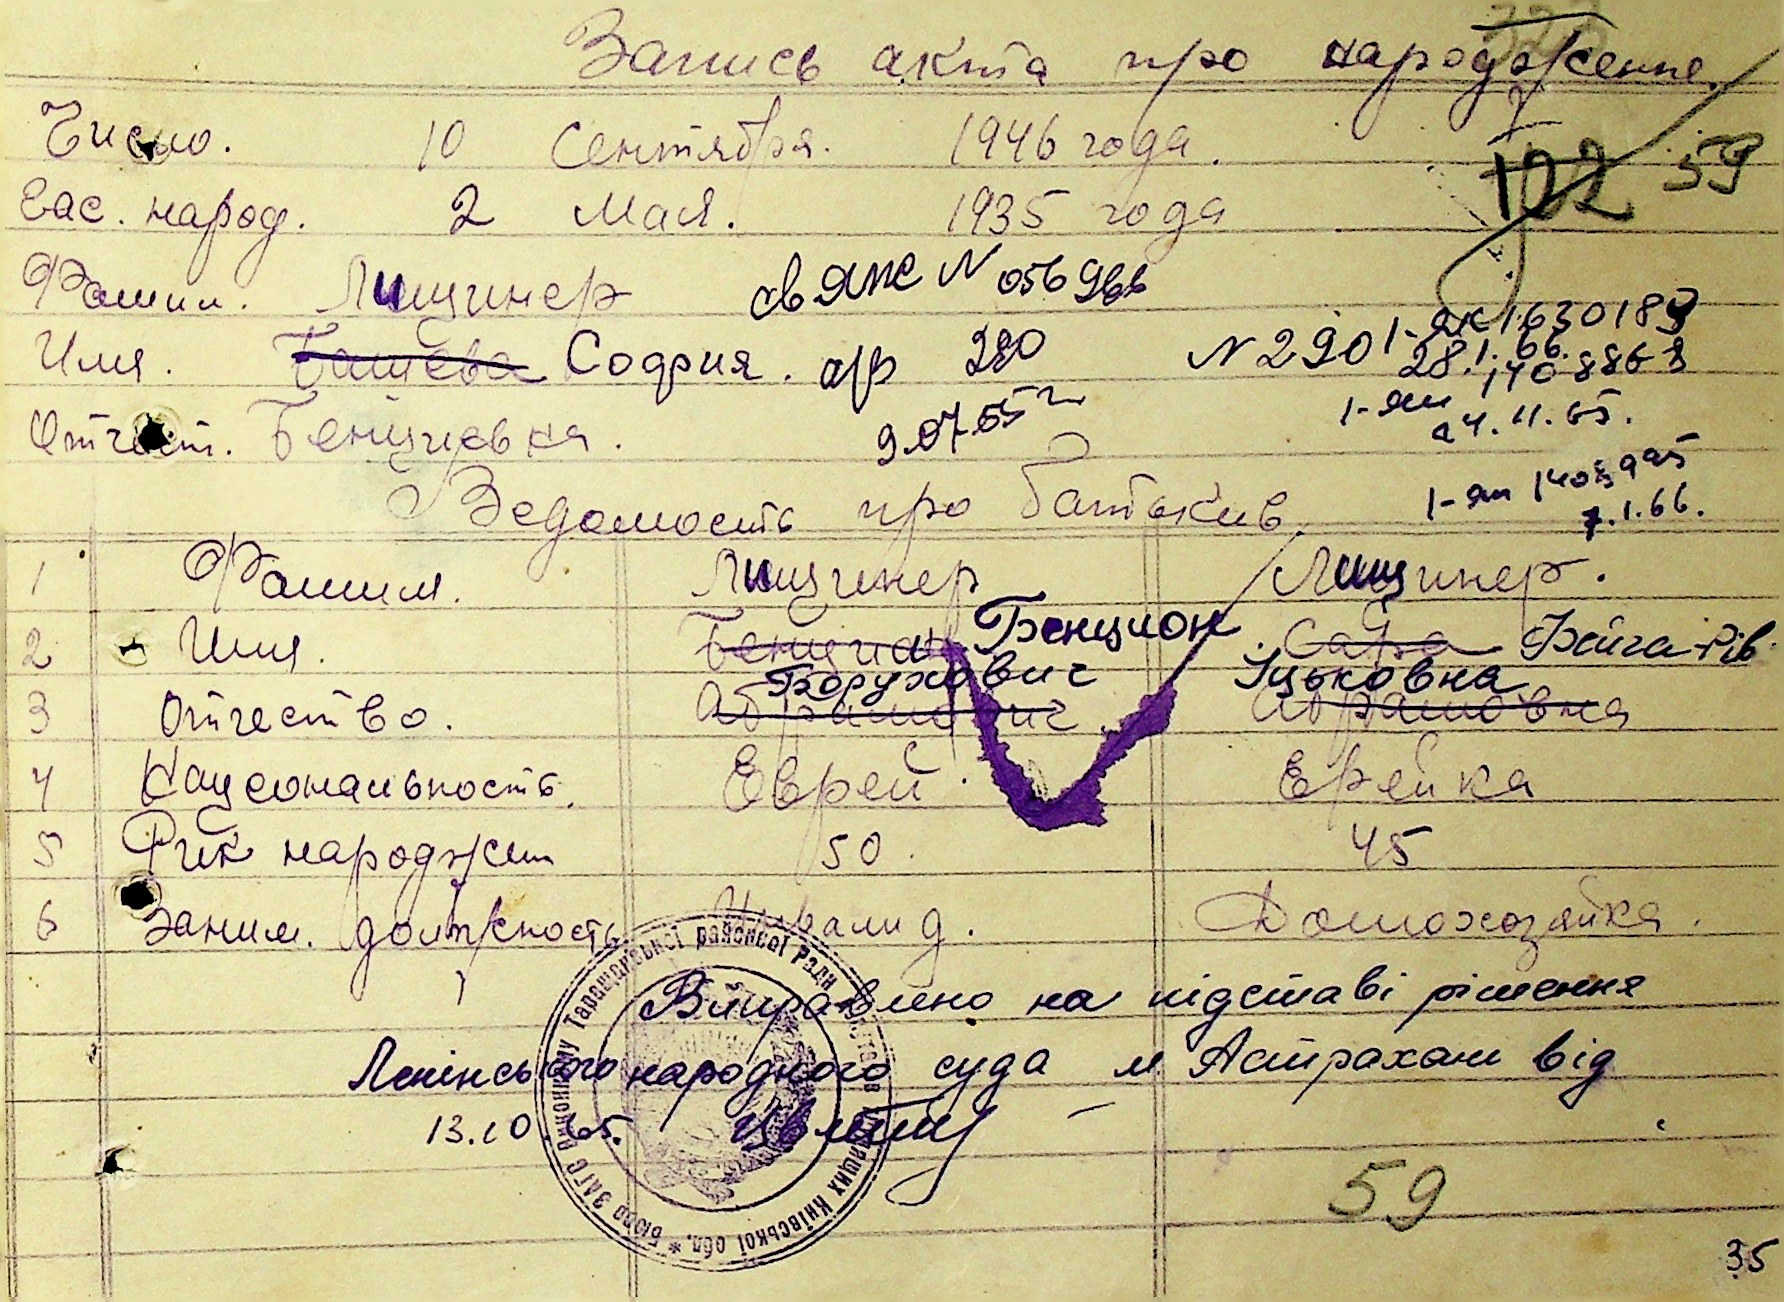 Запись акта про народження
Число. 10 Сентября. 1946 года.
122 59
Час. народ. 2 Мая. 1935 года
Фамил. Лищинер
N 056966
Имя. София. 290 N 290 1-ЯК 1630189
28.1.66.
Отчест. Бенционвна. 9.07.65 г.
24.11.65.
Ведомость про батькив.
7.1.66.
1 Фамил. Лищинер Лищинер.
2 Имя. Бенцион Сара Фейга-Рів.
Борухович Іцьковна
3 Отчество. Абрамович Абрамовна
4 Нацеональность. Еврей. Ерейка
5 Рик народжен 50. 45
6 Заним. должность Инвалид. Домохозяйка.
Виправлено на підставі рішення
Ленінського народного суда м Астрахані від
13.10.65.
Бюро ЗАГС Виконкому Таращанської районної Ради депутатів трудящих Київської обл.
59
35